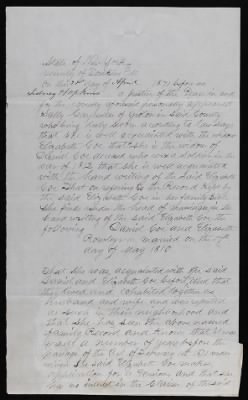 State of New York
County of
On this day of April 1871 before me
Sidney Hopkins a Justice of the Peace in and
for the County aforesaid personally appeared
Sally Carpenter of in Said County
who being duly Sworn according to Law Says
that she is well acquainted with the widow
Elizabeth Coe that She is the widow of
Daniel Coe deceased who was a soldier in the
war of 1812 that She is well acquainted
with the hand writing of the Said Elizabeth
Coe that on referring to the Record kept by
the Said Elizabeth Coe in her family bible
She finds under the head of marriages in the
hand writing of the Said Elizabeth Coe the
following Daniel Coe and Elizabeth
married on the 17th
day of May 1810
That She was acquainted with the Said
Daniel and Elizabeth Coe before that
they lived and cohabited together as
husband and wife and was reputed
as Such in their neighborhood and
that She has seen the above named
family Record and knows that it was
made a number of years before the
passage of the Act of February 14
under which She Said Elizabeth Coe makes
application for a Pension and that She
has no interest in the Claim of the Said